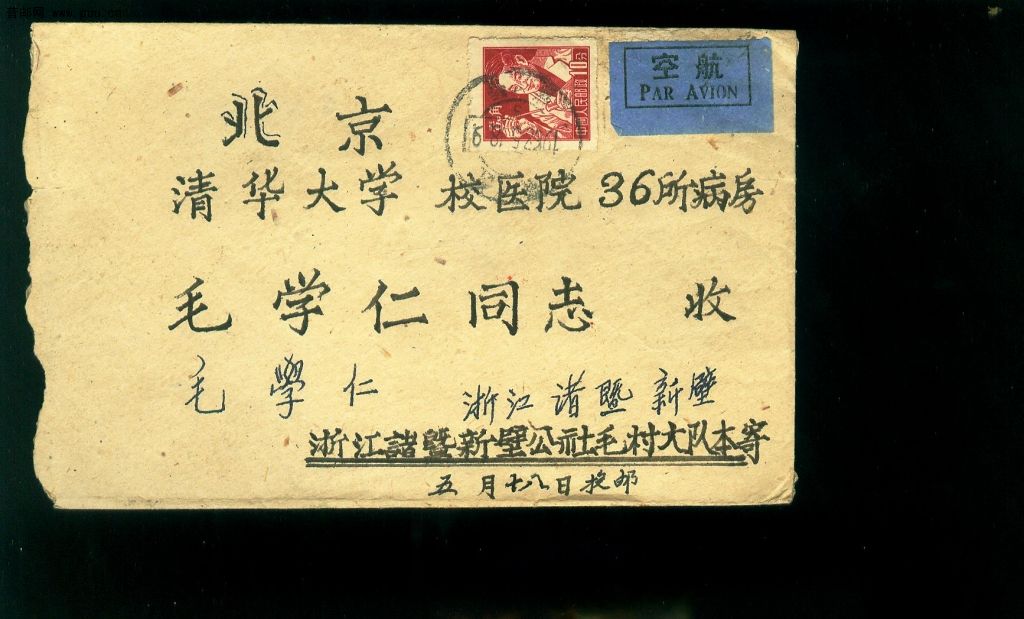 空航
PAR AVION
10分
中国人民邮政
北京
清华大学 校医院 36所病房
毛学仁同志 收
毛學仁 浙江诸暨新壁
浙江諸暨新壁公社毛村大队本寄
五月十八日投邮